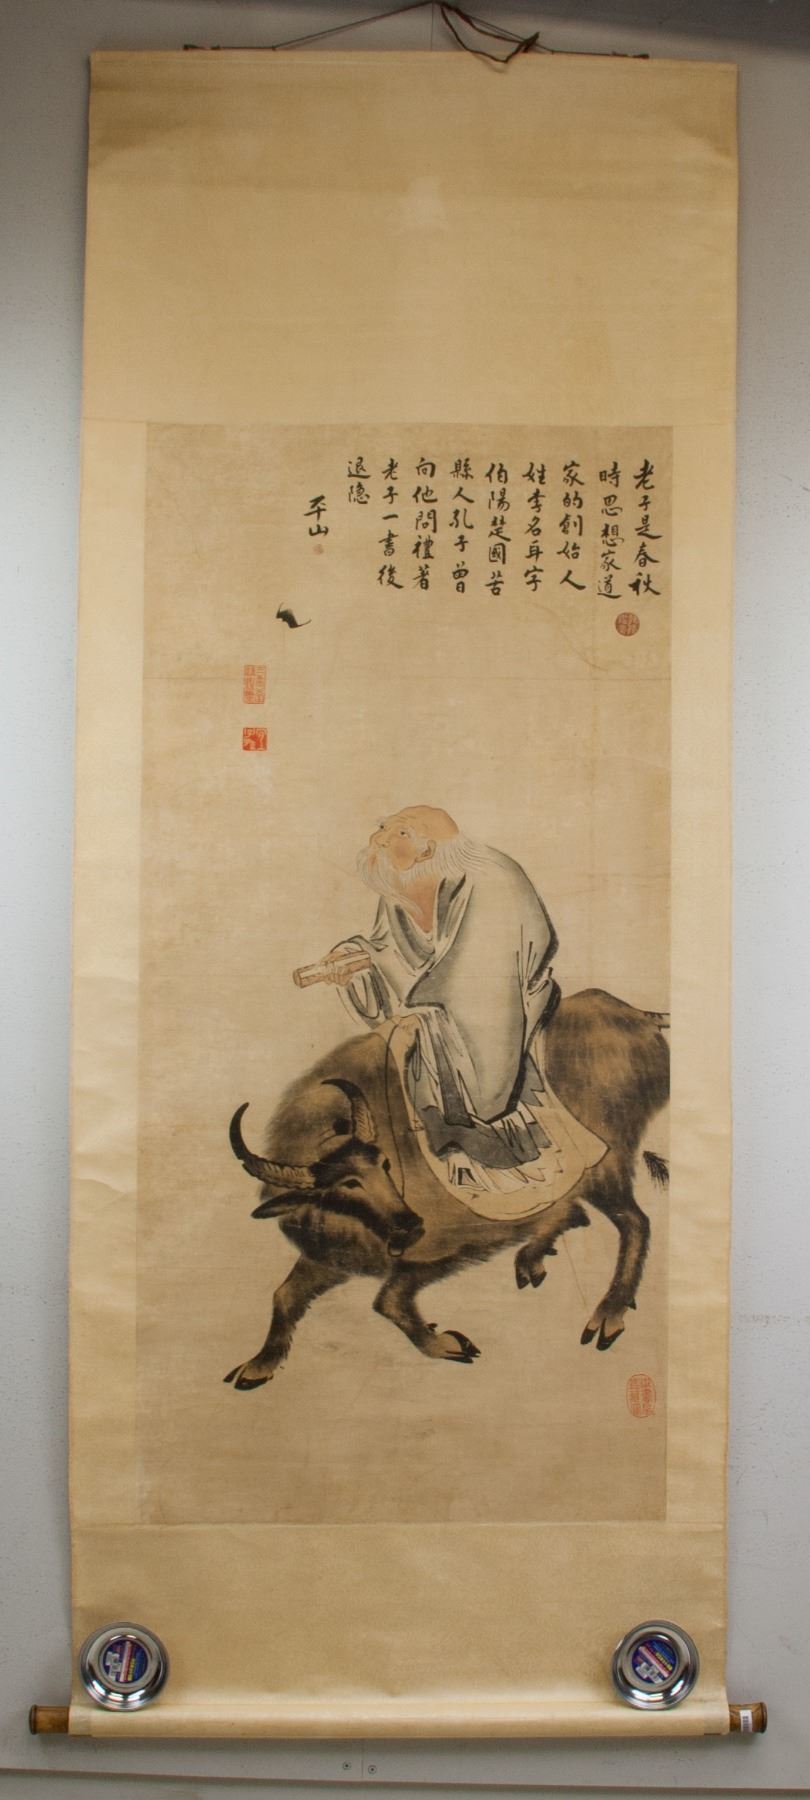 老子是春秋
時思想家道
家的創始人
姓李名耳字
伯陽楚國苦
縣人孔子曾
向他問禮著
老子一書後
退隐
平山